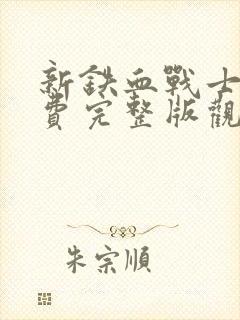 新鉄血戰士
費完整版觀
朱宗順